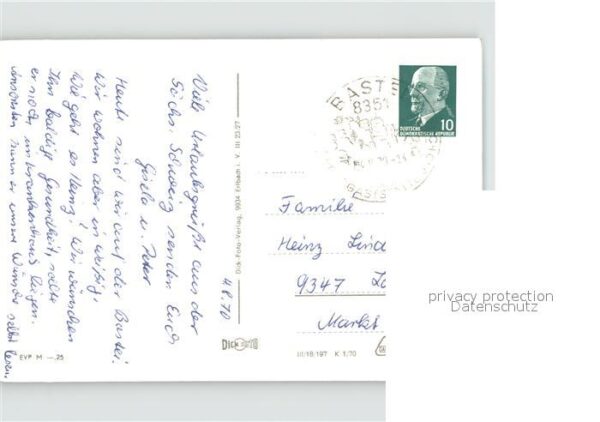 Viele Urlaubsgrüße aus der
Sächs. Schweiz senden Euch
Gisela u. Peter
4.8.70
Heute sind wir auf der Bastei.
Wir wohnen aber in
Wie geht es Heinz? Wir wünschen
Ihm baldige Gesundheit, sollte
er noch im Krankenhaus liegen.
kann er unsere Wünsche selbst lesen.
EVP M —.25
Dick-Foto-Verlag, 9934 Erlbach i. V. III 23 27
DICK FOTO
BASTEI
8351
DEUTSCHE
DEMOKRATISCHE REPUBLIK
10
Familie
Heinz
9347
Markt
III/18/197 K 1/70
privacy protection
Datenschutz